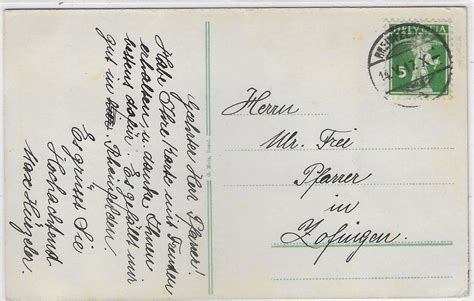 Geehrter Herr Pfarrer!
Habe Ihre Karte mit Freuden
erhalten u. danke Ihnen
bestens dafür. Es gefällt mir
gut in Rheinfelden.
Es grüsst Sie
Hochachtend
Max Hügeler.
HELVETIA
5
Herrn
Ulr. Frei
Pfarrer
in
Zofingen.